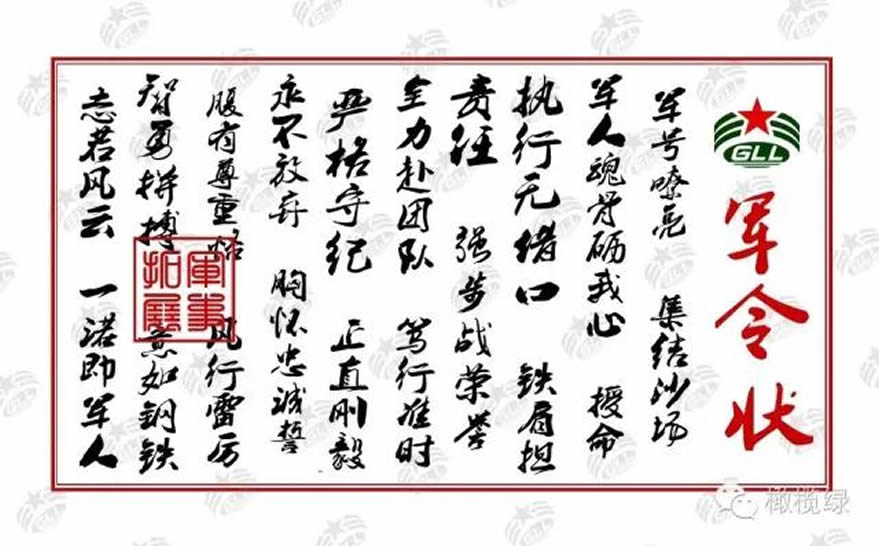 GLL
军令状
军号嘹亮 集结沙场
军人魂骨砺我心 授命
执行无借口 铁肩担
责任 强步战荣誉
全力赴团队 笃行准时
严格守纪 正直刚毅
永不放弃 胸怀忠诚誓
腹有尊重 风行雷厉
智勇拼搏 意如钢铁
志若风云 一诺即军人
军事拓展
橄榄绿